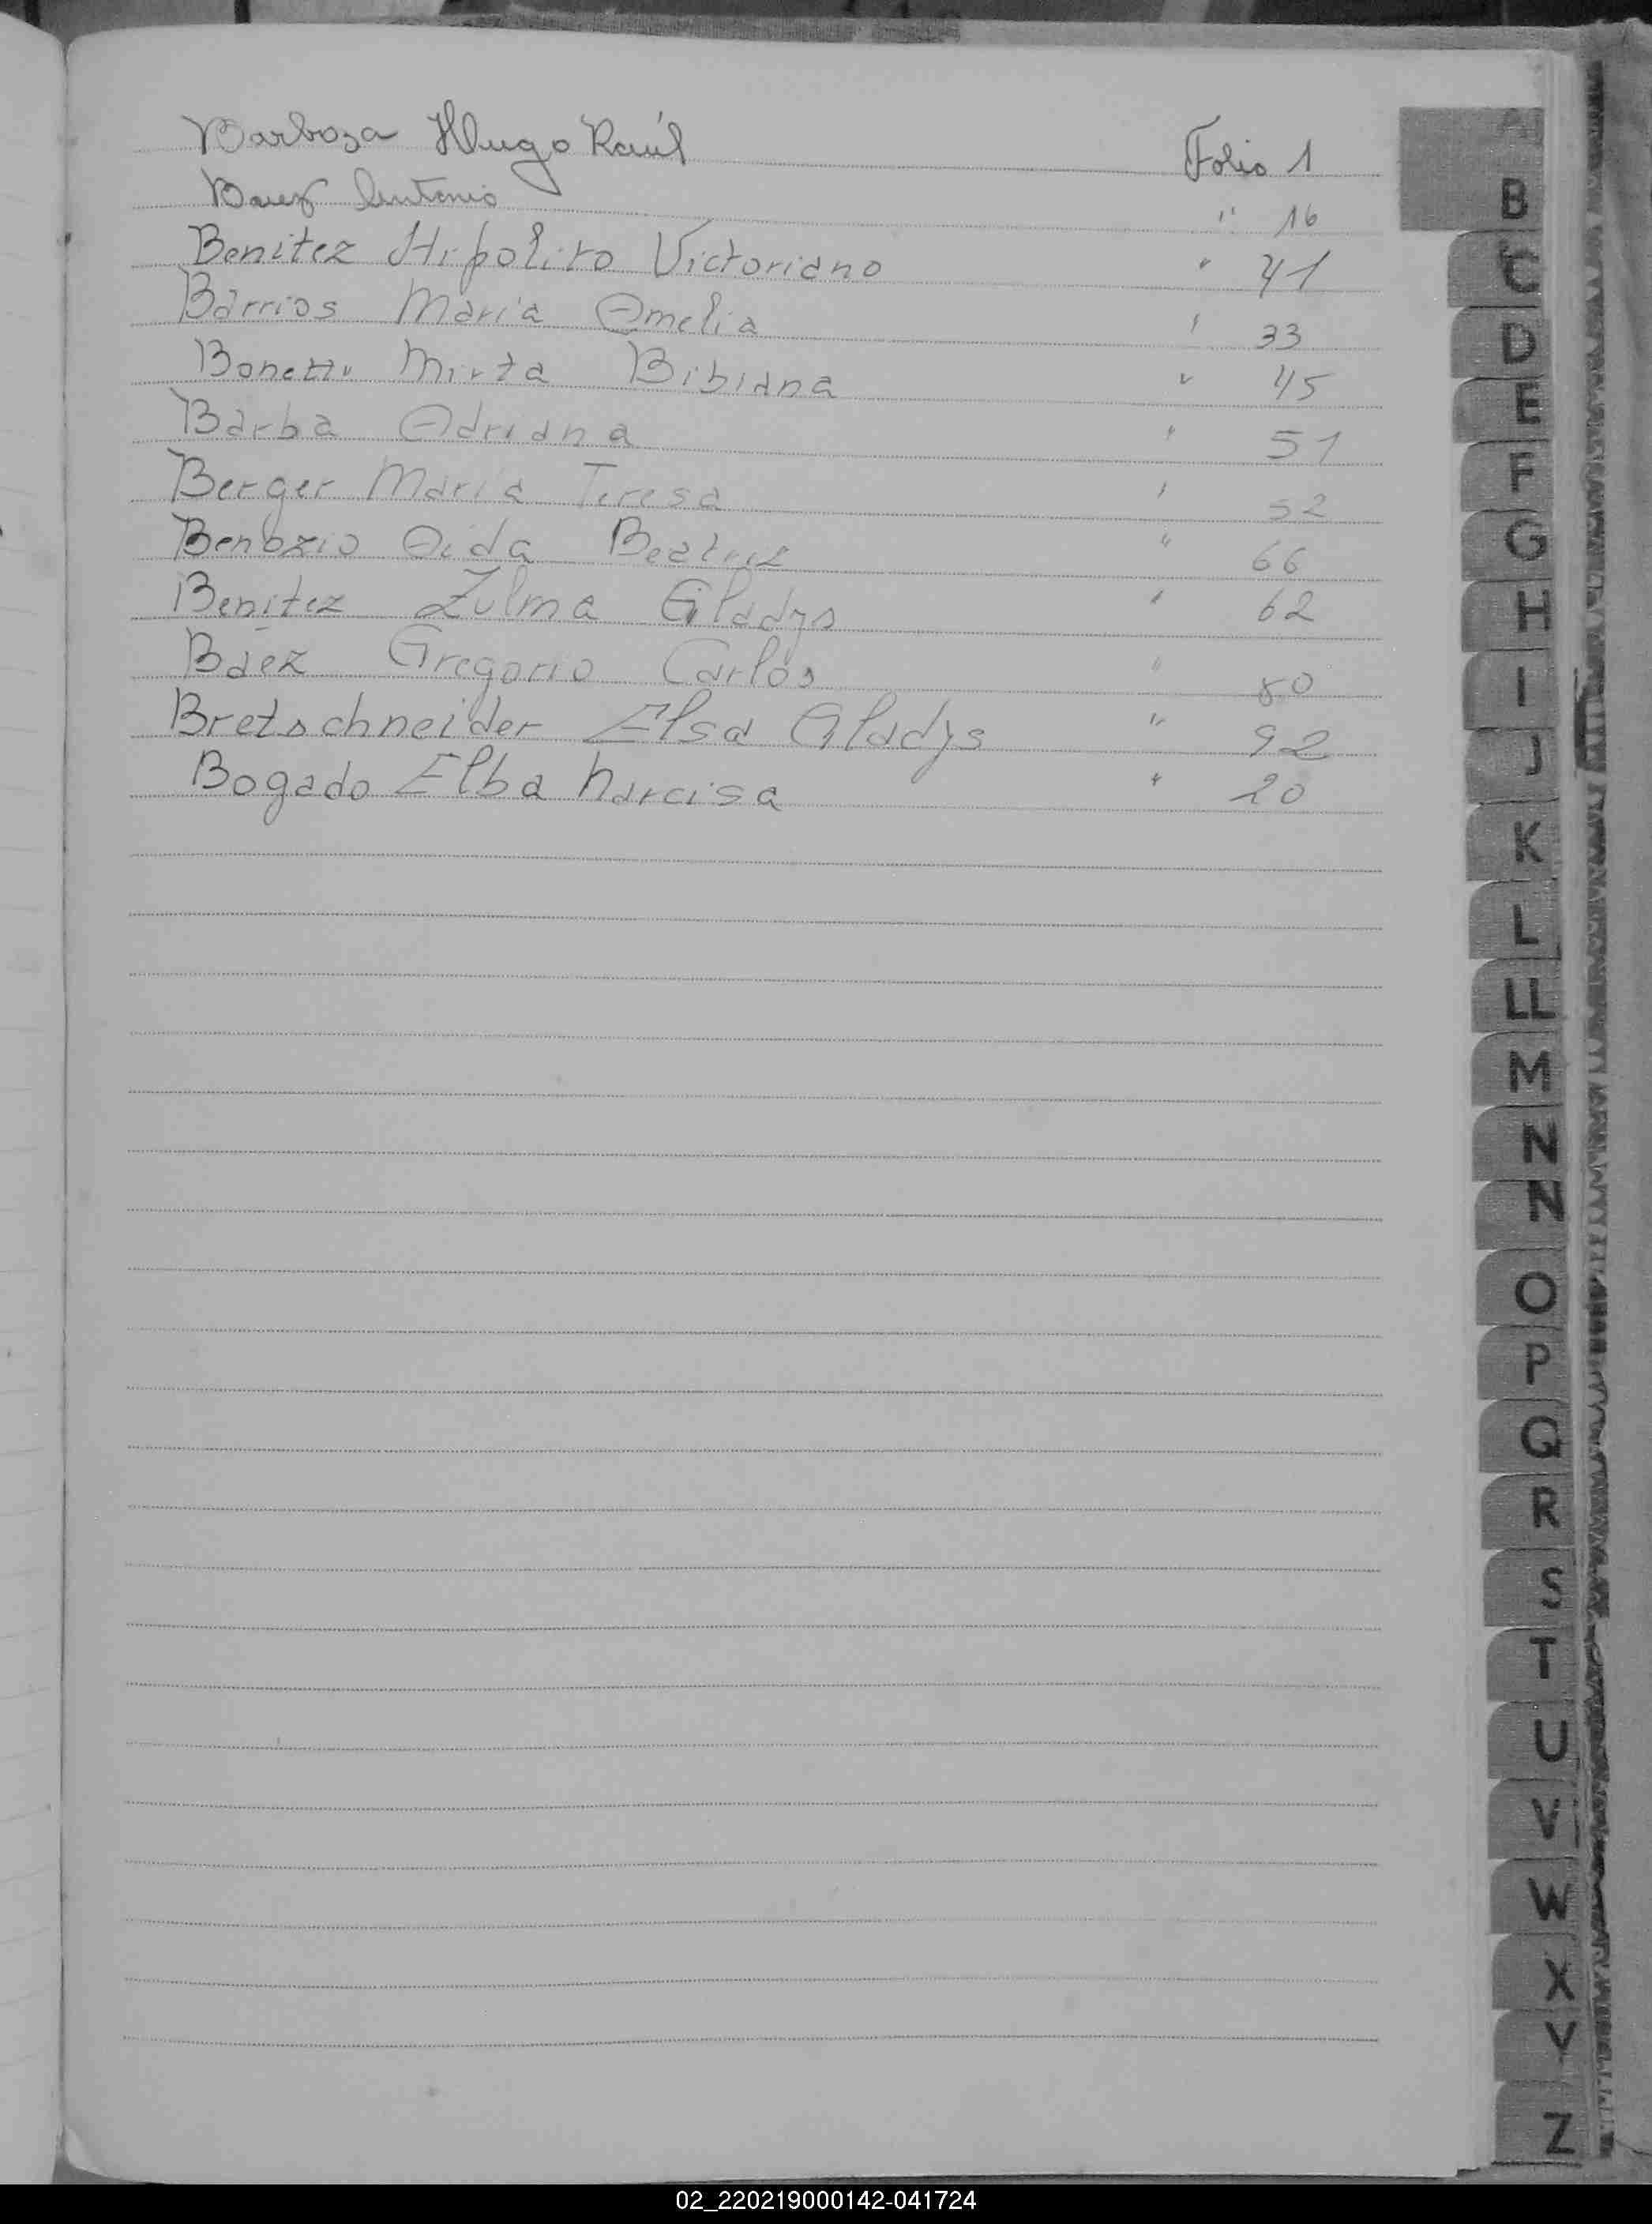 Barboza Hugo Raúl Folio 1
Baez Antonio " 16
Benitez Hipolito Victoriano " 41
Barrios Maria Amelia " 33
Bonetti Mirta Bibiana " 45
Barba Adriana " 51
Berger María Teresa " 52
Benbzio Aida Beatriz " 66
Benitez Zulma Gladys " 62
Baez Gregorio Carlos " 80
Bretschneider Elsa Gladys " 92
Bogado Elba Narcisa " 20
A
B
C
D
E
F
G
H
I
J
K
L
LL
M
N
Ñ
O
P
Q
R
S
T
U
V
W
X
Y
Z
02_220219000142-041724